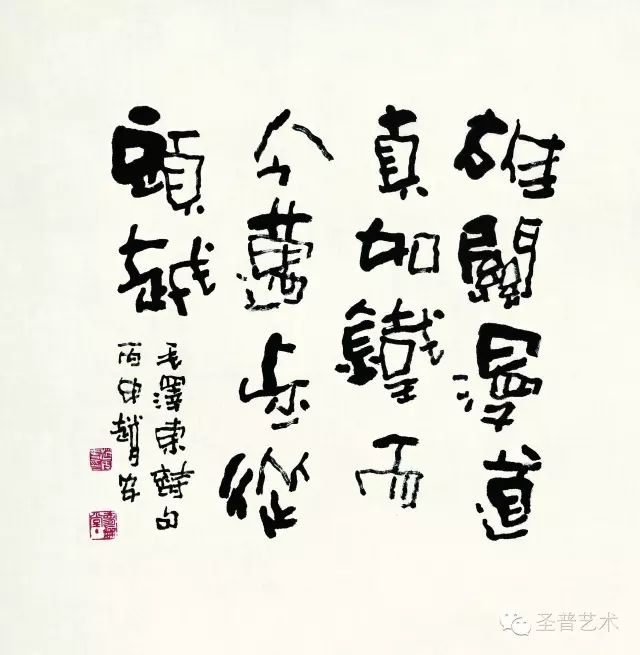 雄關漫道
真如鐵而
今邁步從
頭越
毛澤東詩句
丙申趙
圣普艺术